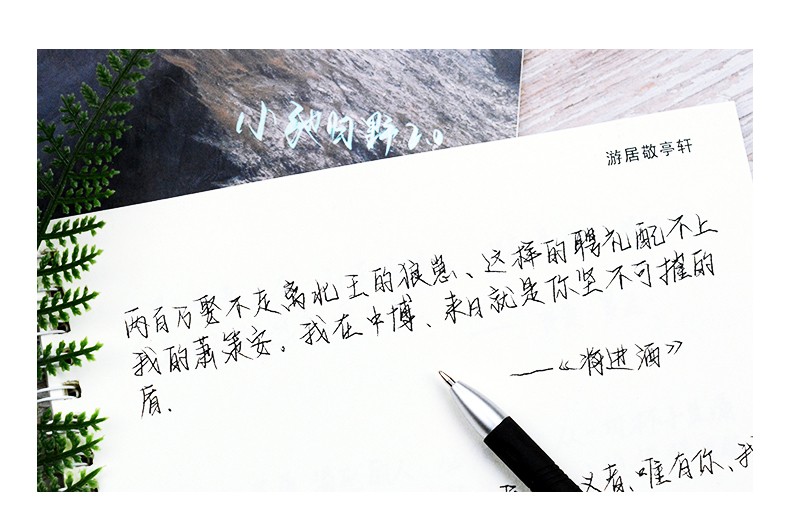 小驰行野2.0
游居敬亭轩
两百万娶不走离北王的狼崽、这样的聘礼配不上
我的萧策安。我在中博、来日就是你坚不可摧的
盾.
——《将进酒》
义者、唯有你、我